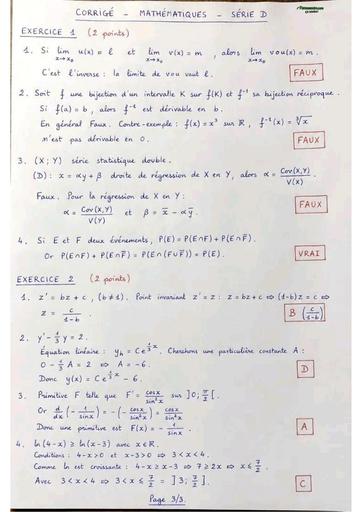 CORRIGÉ - MATHÉMATIQUES - SÉRIE D
EXERCICE 1 (2 points)
1. Si lim u(x) = l et lim v(x) = m, alors lim vou(x) = m.
x→x₀ x→x₀ x→x₀
C'est l'inverse : la limite de vou vaut l. FAUX
2. Soit f une bijection d'un intervalle K sur f(K) et f⁻¹ sa bijection réciproque.
Si f(a) = b, alors f⁻¹ est dérivable en b.
En général Faux. Contre-exemple : f(x) = x³ sur ℝ, f⁻¹(x) = ∛x
n'est pas dérivable en 0. FAUX
3. (X ; Y) série statistique double.
(D) : x = αy + β droite de régression de X en Y, alors α = Cov(X,Y)/V(X).
Faux. Pour la régression de X en Y :
α = Cov(X,Y)/V(Y) et β = x̄ - αȳ. FAUX
4. Si E et F deux événements, P(E) = P(E∩F) + P(E∩F̄).
Or P(E∩F) + P(E∩F̄) = P(E∩(F∪F̄)) = P(E). VRAI
EXERCICE 2 (2 points)
1. z' = bz + c, (b≠1). Point invariant z' = z : z = bz + c ⇔ (1-b)z = c ⇔
z = c/(1-b) B (c/(1-b))
2. y' - 1/3 y = 2.
Équation linéaire : yₕ = C e^(1/3 x). Cherchons une particulière constante A :
0 - 1/3 A = 2 ⇔ A = -6. D
Donc y(x) = C e^(1/3 x) - 6.
3. Primitive F telle que F' = cosx/sin²x sur ]0; π/2[.
Or d/dx (- 1/sinx) = -(- cosx/sin²x) = cosx/sin²x
Donc une primitive est F(x) = - 1/sinx. A
4. ln(4-x) ≥ ln(x-3) avec x∈ℝ.
Conditions : 4-x>0 et x-3>0 ⇒ 3<x<4.
Comme ln est croissante : 4-x ≥ x-3 ⇒ 7 ≥ 2x ⇔ x ≤ 7/2
Avec 3<x<4 ⇒ 3<x≤ 7/2 = ]3; 7/2]. C
Page 3/3.